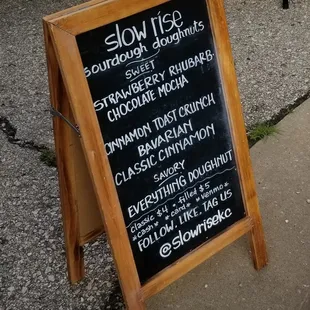 slow rise
sourdough doughnuts
SWEET
STRAWBERRY RHUBARB
CHOCOLATE MOCHA
CINNAMON TOAST CRUNCH
BAVARIAN
CLASSIC CINNAMON
SAVORY
EVERYTHING DOUGHNUT
classic $4 * filled $5
*cash* *card* *venmo*
FOLLOW. LIKE. TAG US
@slowrisekc